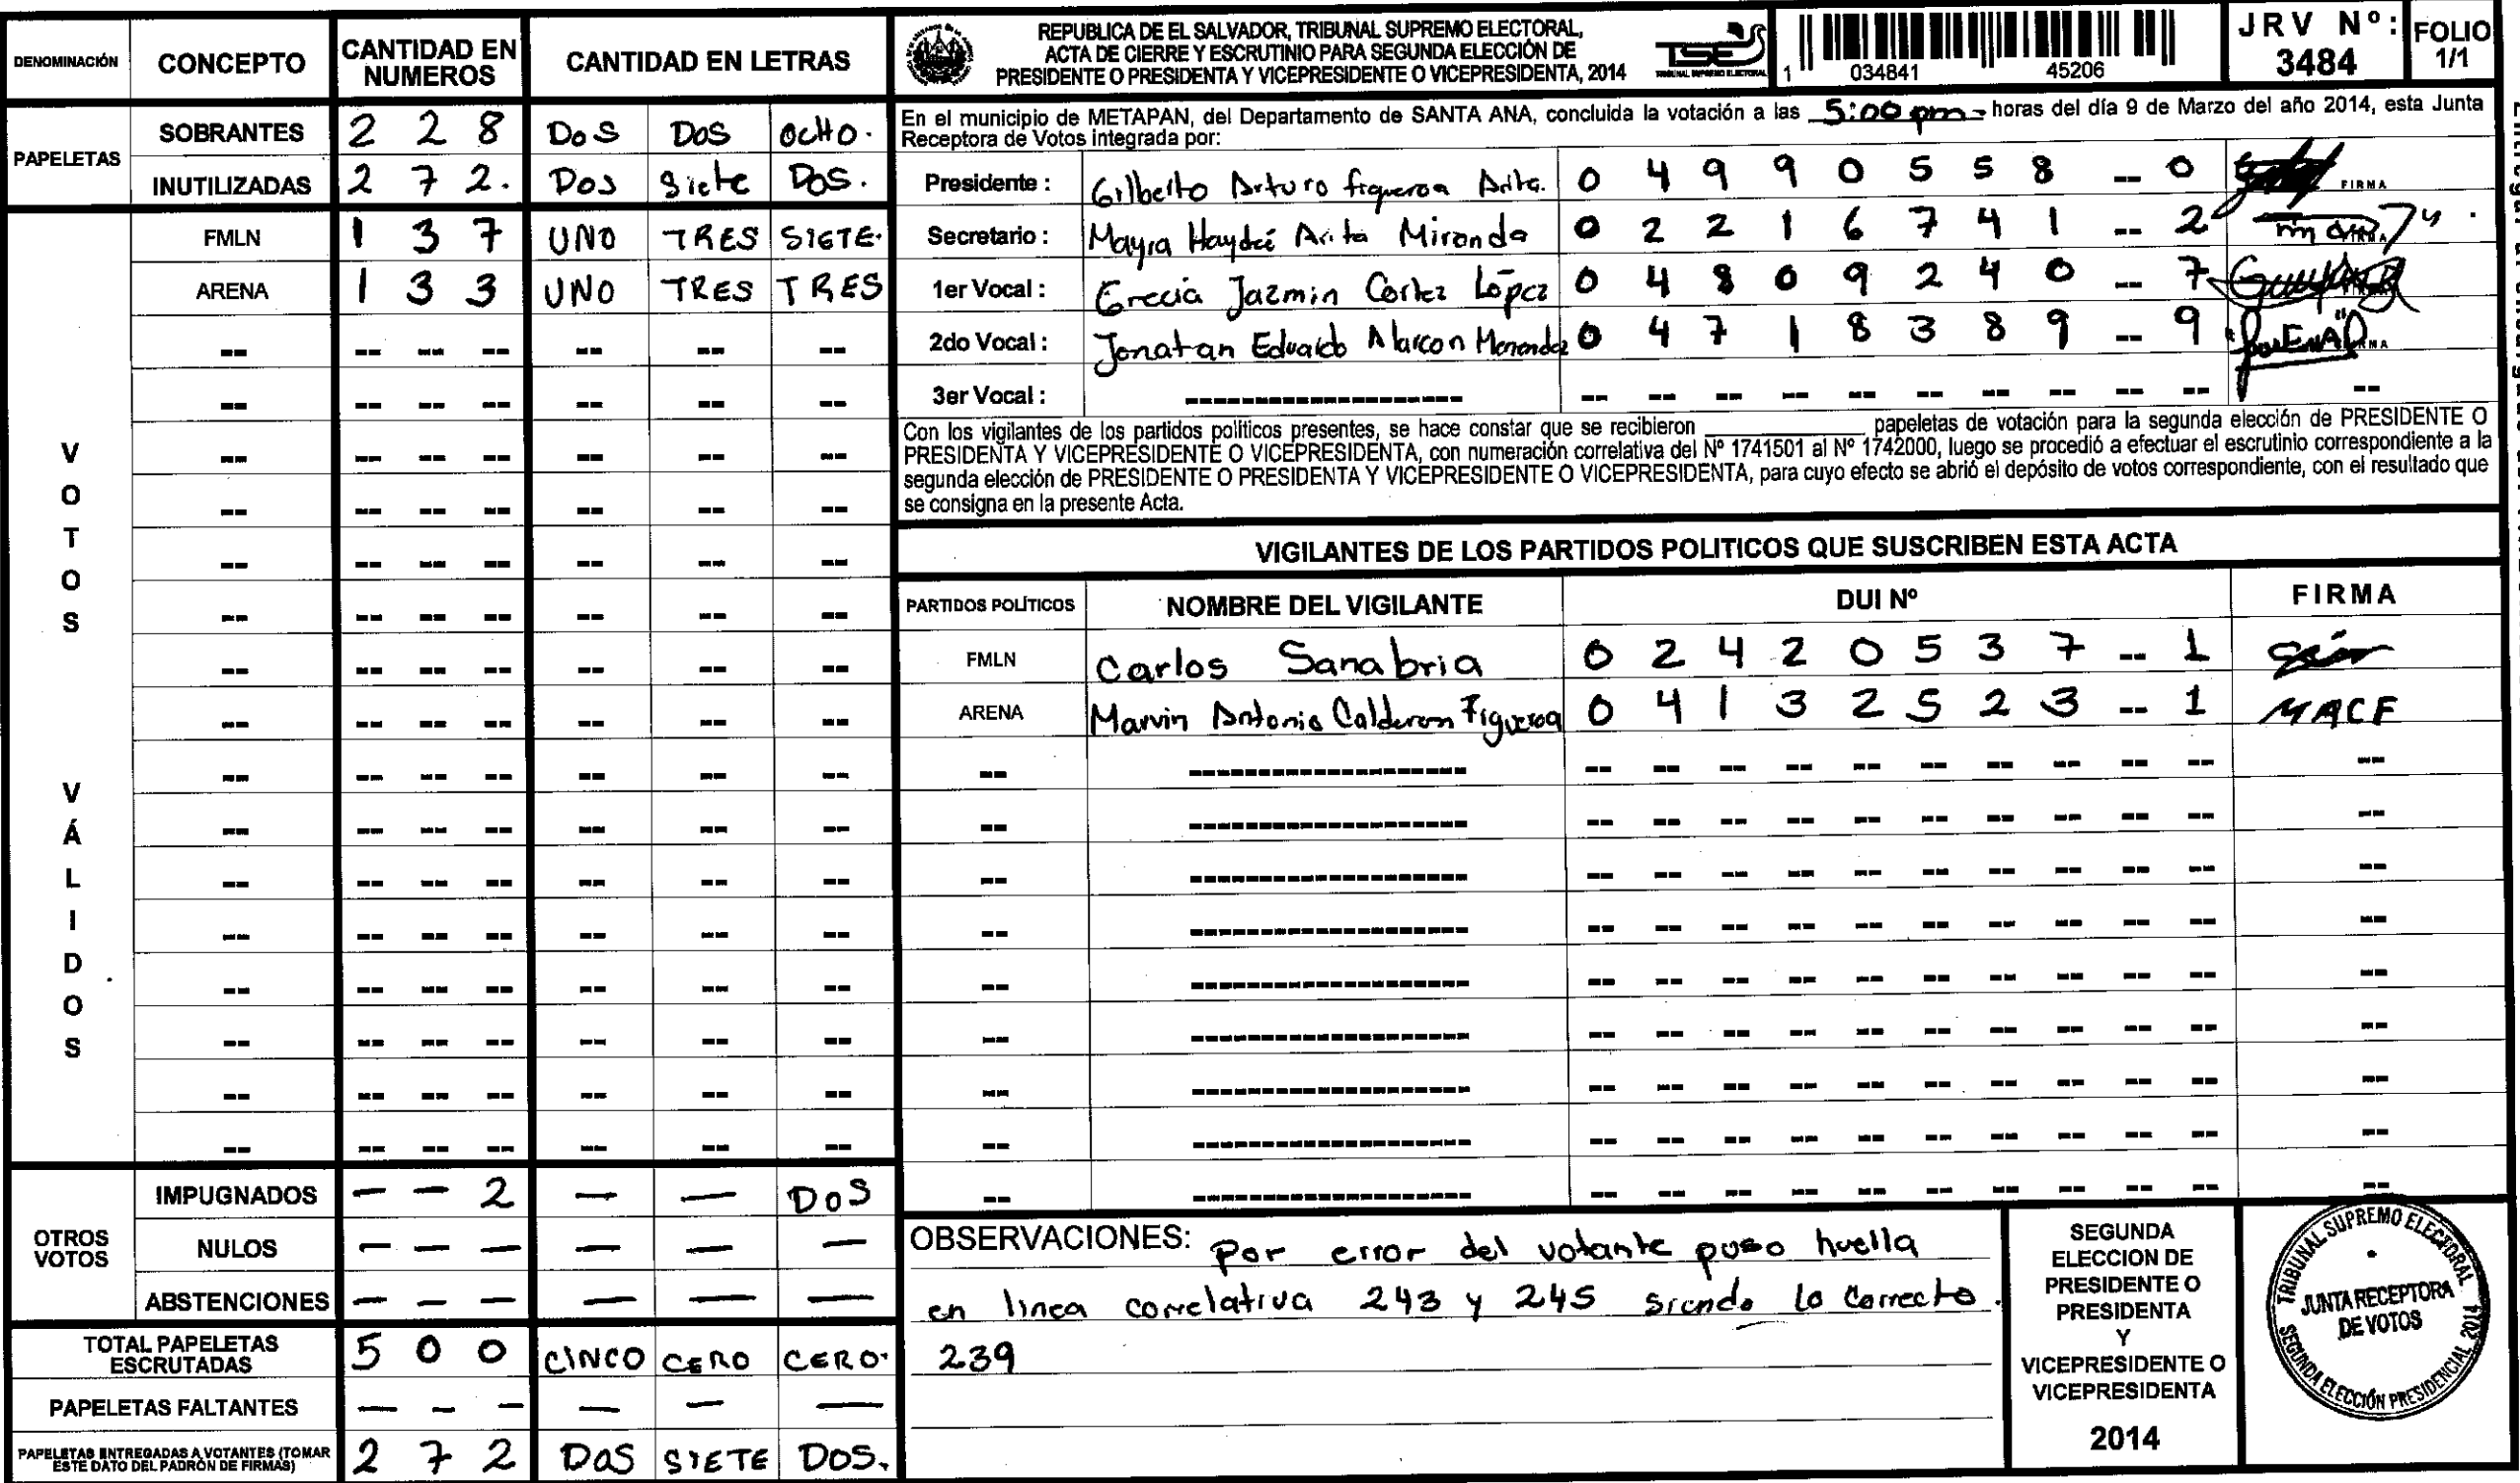 DENOMINACIÓN CONCEPTO CANTIDAD EN NUMEROS CANTIDAD EN LETRAS
PAPELETAS
SOBRANTES 2 2 8 DOS DOS OCHO.
INUTILIZADAS 2 7 2. DOS Siete DOS.
VOTOS VÁLIDOS
FMLN 1 3 7 UNO TRES SIETE.
ARENA 1 3 3 UNO TRES TRES
OTROS VOTOS
IMPUGNADOS — — 2 — — DOS
NULOS — — — — — —
ABSTENCIONES — — — — — —
TOTAL PAPELETAS ESCRUTADAS 5 0 0 CINCO CERO CERO.
PAPELETAS FALTANTES — — — — — —
PAPELETAS ENTREGADAS A VOTANTES (TOMAR ESTE DATO DEL PADRÓN DE FIRMAS) 2 7 2 DOS SIETE DOS.
REPUBLICA DE EL SALVADOR, TRIBUNAL SUPREMO ELECTORAL,
ACTA DE CIERRE Y ESCRUTINIO PARA SEGUNDA ELECCIÓN DE
PRESIDENTE O PRESIDENTA Y VICEPRESIDENTE O VICEPRESIDENTA, 2014
TSE
TRIBUNAL SUPREMO ELECTORAL
1 034841 45206
JRV Nº: 3484
FOLIO 1/1
En el municipio de METAPAN, del Departamento de SANTA ANA, concluida la votación a las 5:00 pm horas del día 9 de Marzo del año 2014, esta Junta
Receptora de Votos integrada por:
Presidente : Gilberto Arturo figueroa Arita. 0 4 9 9 0 5 5 8 -- 0 FIRMA
Secretario : Mayra Haydeé Arita Miranda 0 2 2 1 6 7 4 1 -- 2
1er Vocal : Grecia Jazmin Cortez López 0 4 8 0 9 2 4 0 -- 7
2do Vocal : Jonatan Eduardo Alarcon Menendez 0 4 7 1 8 3 8 9 -- 9
3er Vocal :
Con los vigilantes de los partidos políticos presentes, se hace constar que se recibieron papeletas de votación para la segunda elección de PRESIDENTE O
PRESIDENTA Y VICEPRESIDENTE O VICEPRESIDENTA, con numeración correlativa del Nº 1741501 al Nº 1742000, luego se procedió a efectuar el escrutinio correspondiente a la
segunda elección de PRESIDENTE O PRESIDENTA Y VICEPRESIDENTE O VICEPRESIDENTA, para cuyo efecto se abrió el depósito de votos correspondiente, con el resultado que
se consigna en la presente Acta.
VIGILANTES DE LOS PARTIDOS POLITICOS QUE SUSCRIBEN ESTA ACTA
PARTIDOS POLÍTICOS NOMBRE DEL VIGILANTE DUI Nº FIRMA
FMLN Carlos Sanabria 0 2 4 2 0 5 3 7 -- 1
ARENA Marvin Antonio Calderon Figueroa 0 4 1 3 2 5 2 3 -- 1 MACF
OBSERVACIONES: Por error del votante puso huella
en linea correlativa 243 y 245 siendo lo correcto.
239
SEGUNDA
ELECCION DE
PRESIDENTE O
PRESIDENTA
Y
VICEPRESIDENTE O
VICEPRESIDENTA
2014
TRIBUNAL SUPREMO ELECTORAL
JUNTA RECEPTORA
DE VOTOS
SEGUNDA ELECCIÓN PRESIDENCIAL 2014